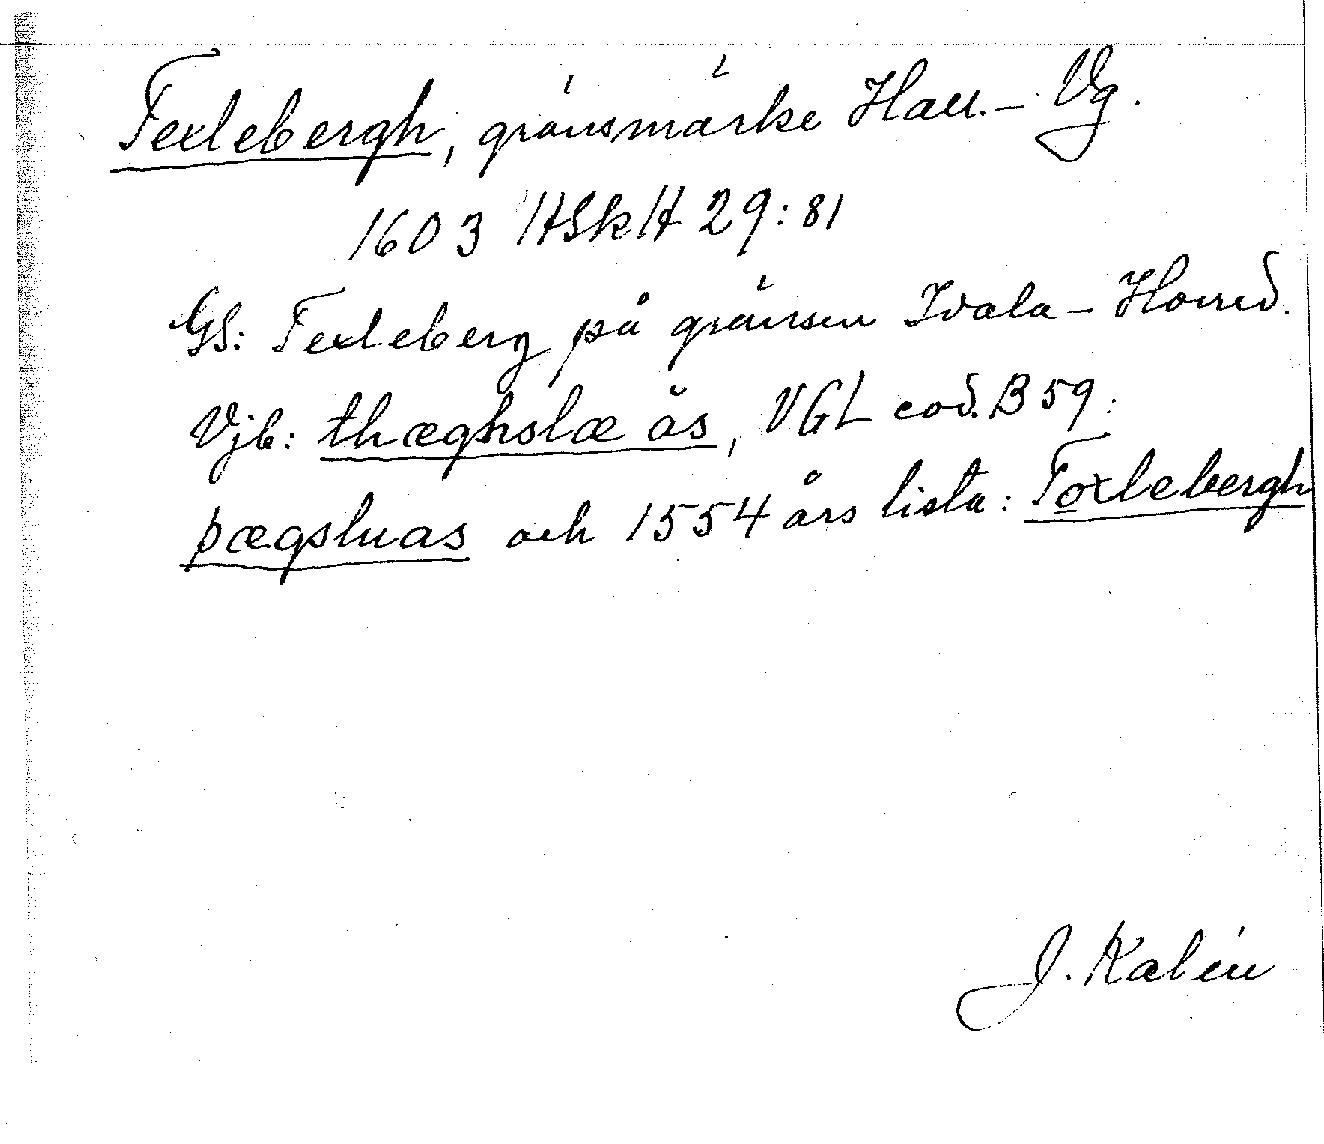 Texlebergh, gränsmärke Hall.- Vg.
1603 HSkH 29:81
GS: Texleberg på gränsen Idala - Horred.
Vjb: thæghslæ ås, VGL cod. B 59:
þægsluas och 1554 års lista: Toxlebergh
J. Kalén